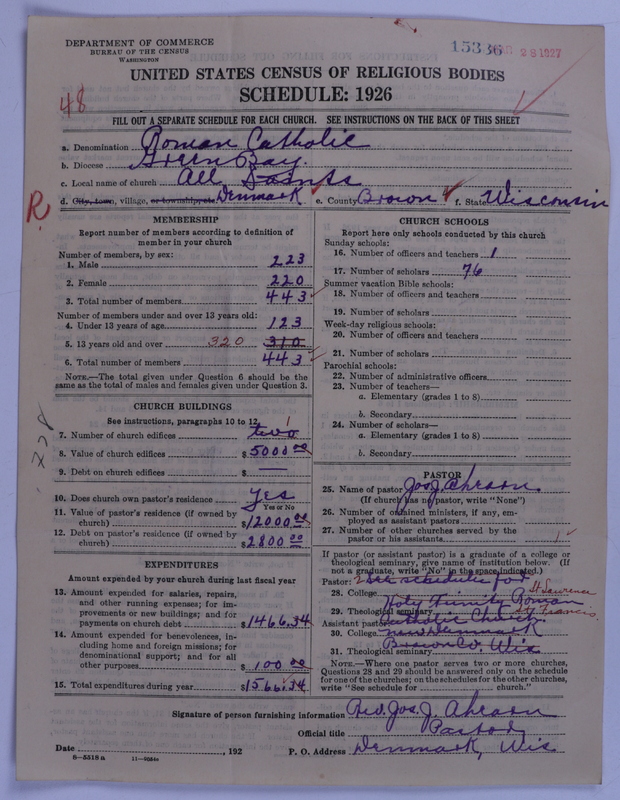 DEPARTMENT OF COMMERCE
BUREAU OF THE CENSUS
WASHINGTON
15336
28 1927
UNITED STATES CENSUS OF RELIGIOUS BODIES
SCHEDULE: 1926
48
FILL OUT A SEPARATE SCHEDULE FOR EACH CHURCH. SEE INSTRUCTIONS ON THE BACK OF THIS SHEET
a. Denomination Roman Catholic
b. Diocese Green Bay.
c. Local name of church All Saints
R.
d. City, town, village, or township, etc. Denmark e. County Brown f. State Wisconsin
MEMBERSHIP
Report number of members according to definition of
member in your church
Number of members, by sex:
1. Male 223
2. Female 220
3. Total number of members 443
Number of members under and over 13 years old:
4. Under 13 years of age 123
5. 13 years old and over 320 310
6. Total number of members 443
NOTE.—The total given under Question 6 should be the
same as the total of males and females given under Question 3.
CHURCH BUILDINGS
See instructions, paragraphs 10 to 12
1
7. Number of church edifices two
8. Value of church edifices $5000 00
9. Debt on church edifices $ —
10. Does church own pastor's residence yes
Yes or No
11. Value of pastor's residence (if owned by
church) $12000 00
12. Debt on pastor's residence (if owned by
church) $2800 00
EXPENDITURES
Amount expended by your church during last fiscal year
13. Amount expended for salaries, repairs,
and other running expenses; for im-
provements or new buildings; and for
payments on church debt $1466.34
14. Amount expended for benevolences, in-
cluding home and foreign missions; for
denominational support; and for all
other purposes $100 00
15. Total expenditures during year $1566.34
CHURCH SCHOOLS
Report here only schools conducted by this church
Sunday schools:
16. Number of officers and teachers 1
17. Number of scholars 76
Summer vacation Bible schools:
18. Number of officers and teachers
19. Number of scholars
Week-day religious schools:
20. Number of officers and teachers
21. Number of scholars
Parochial schools:
22. Number of administrative officers
23. Number of teachers—
a. Elementary (grades 1 to 8)
b. Secondary
24. Number of scholars—
a. Elementary (grades 1 to 8)
b. Secondary
PASTOR
25. Name of pastor Jos. J. Ahearn
(If church has no pastor, write "None")
26. Number of ordained ministers, if any, em-
ployed as assistant pastors
27. Number of other churches served by the
pastor or his assistants 1
If pastor (or assistant pastor) is a graduate of a college or
theological seminary, give name of institution below. (If
not a graduate, write "No" in the space indicated.)
Pastor: 2 See schedule for
28. College St Lawrence
Holy Trinity Roman
29. Theological seminary St Francis.
Assistant pastor: Catholic Church.
30. College New Denmark
Brown Co, Wis
31. Theological seminary
NOTE.—Where one pastor serves two or more churches,
Questions 28 and 29 should be answered only on the schedule
for one of the churches; on the schedules for the other churches,
write "See schedule for church."
Signature of person furnishing information Rev. Jos. J. Ahearn
Official title Pastor
Date , 192 P. O. Address Denmark, Wis
8-5518 a